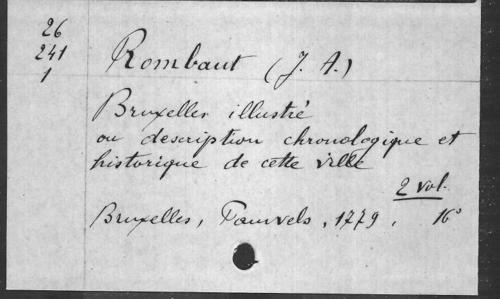 26
241
1
Rombaut (J. A.)
Bruxelles illustré
ou description chronologique et
historique de cette ville
2 vol.
Bruxelles, Pauwels, 1779, 16°